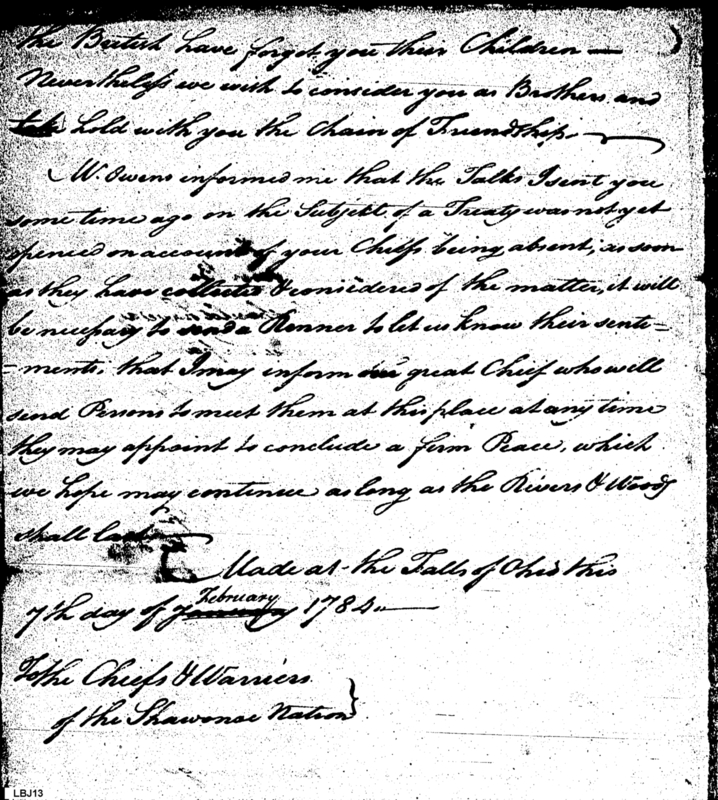 the British have forgot you their Children —
Nevertheless we wish to consider you as Brothers and
take hold with you the Chain of Friendship.
Mr. Owens informed me that the Talks I sent you
some time ago on the Subject of a Treaty was not yet
opened on account of your Chiefs being absent; as soon
as they have collected & considered of the matter, it will
be necessary to send a Runner to let us know their sente=
=ments, that I may inform our great Chief who will
send Persons to meet them at this place at any time
they may appoint to conclude a firm Peace, which
we hope may continue as long as the Rivers & Woods
shall last
Made at the Falls of Ohio this
February
7th day of January 1784
To the Chiefs & Warriers
of the Shawonoe Nation
LBJ13